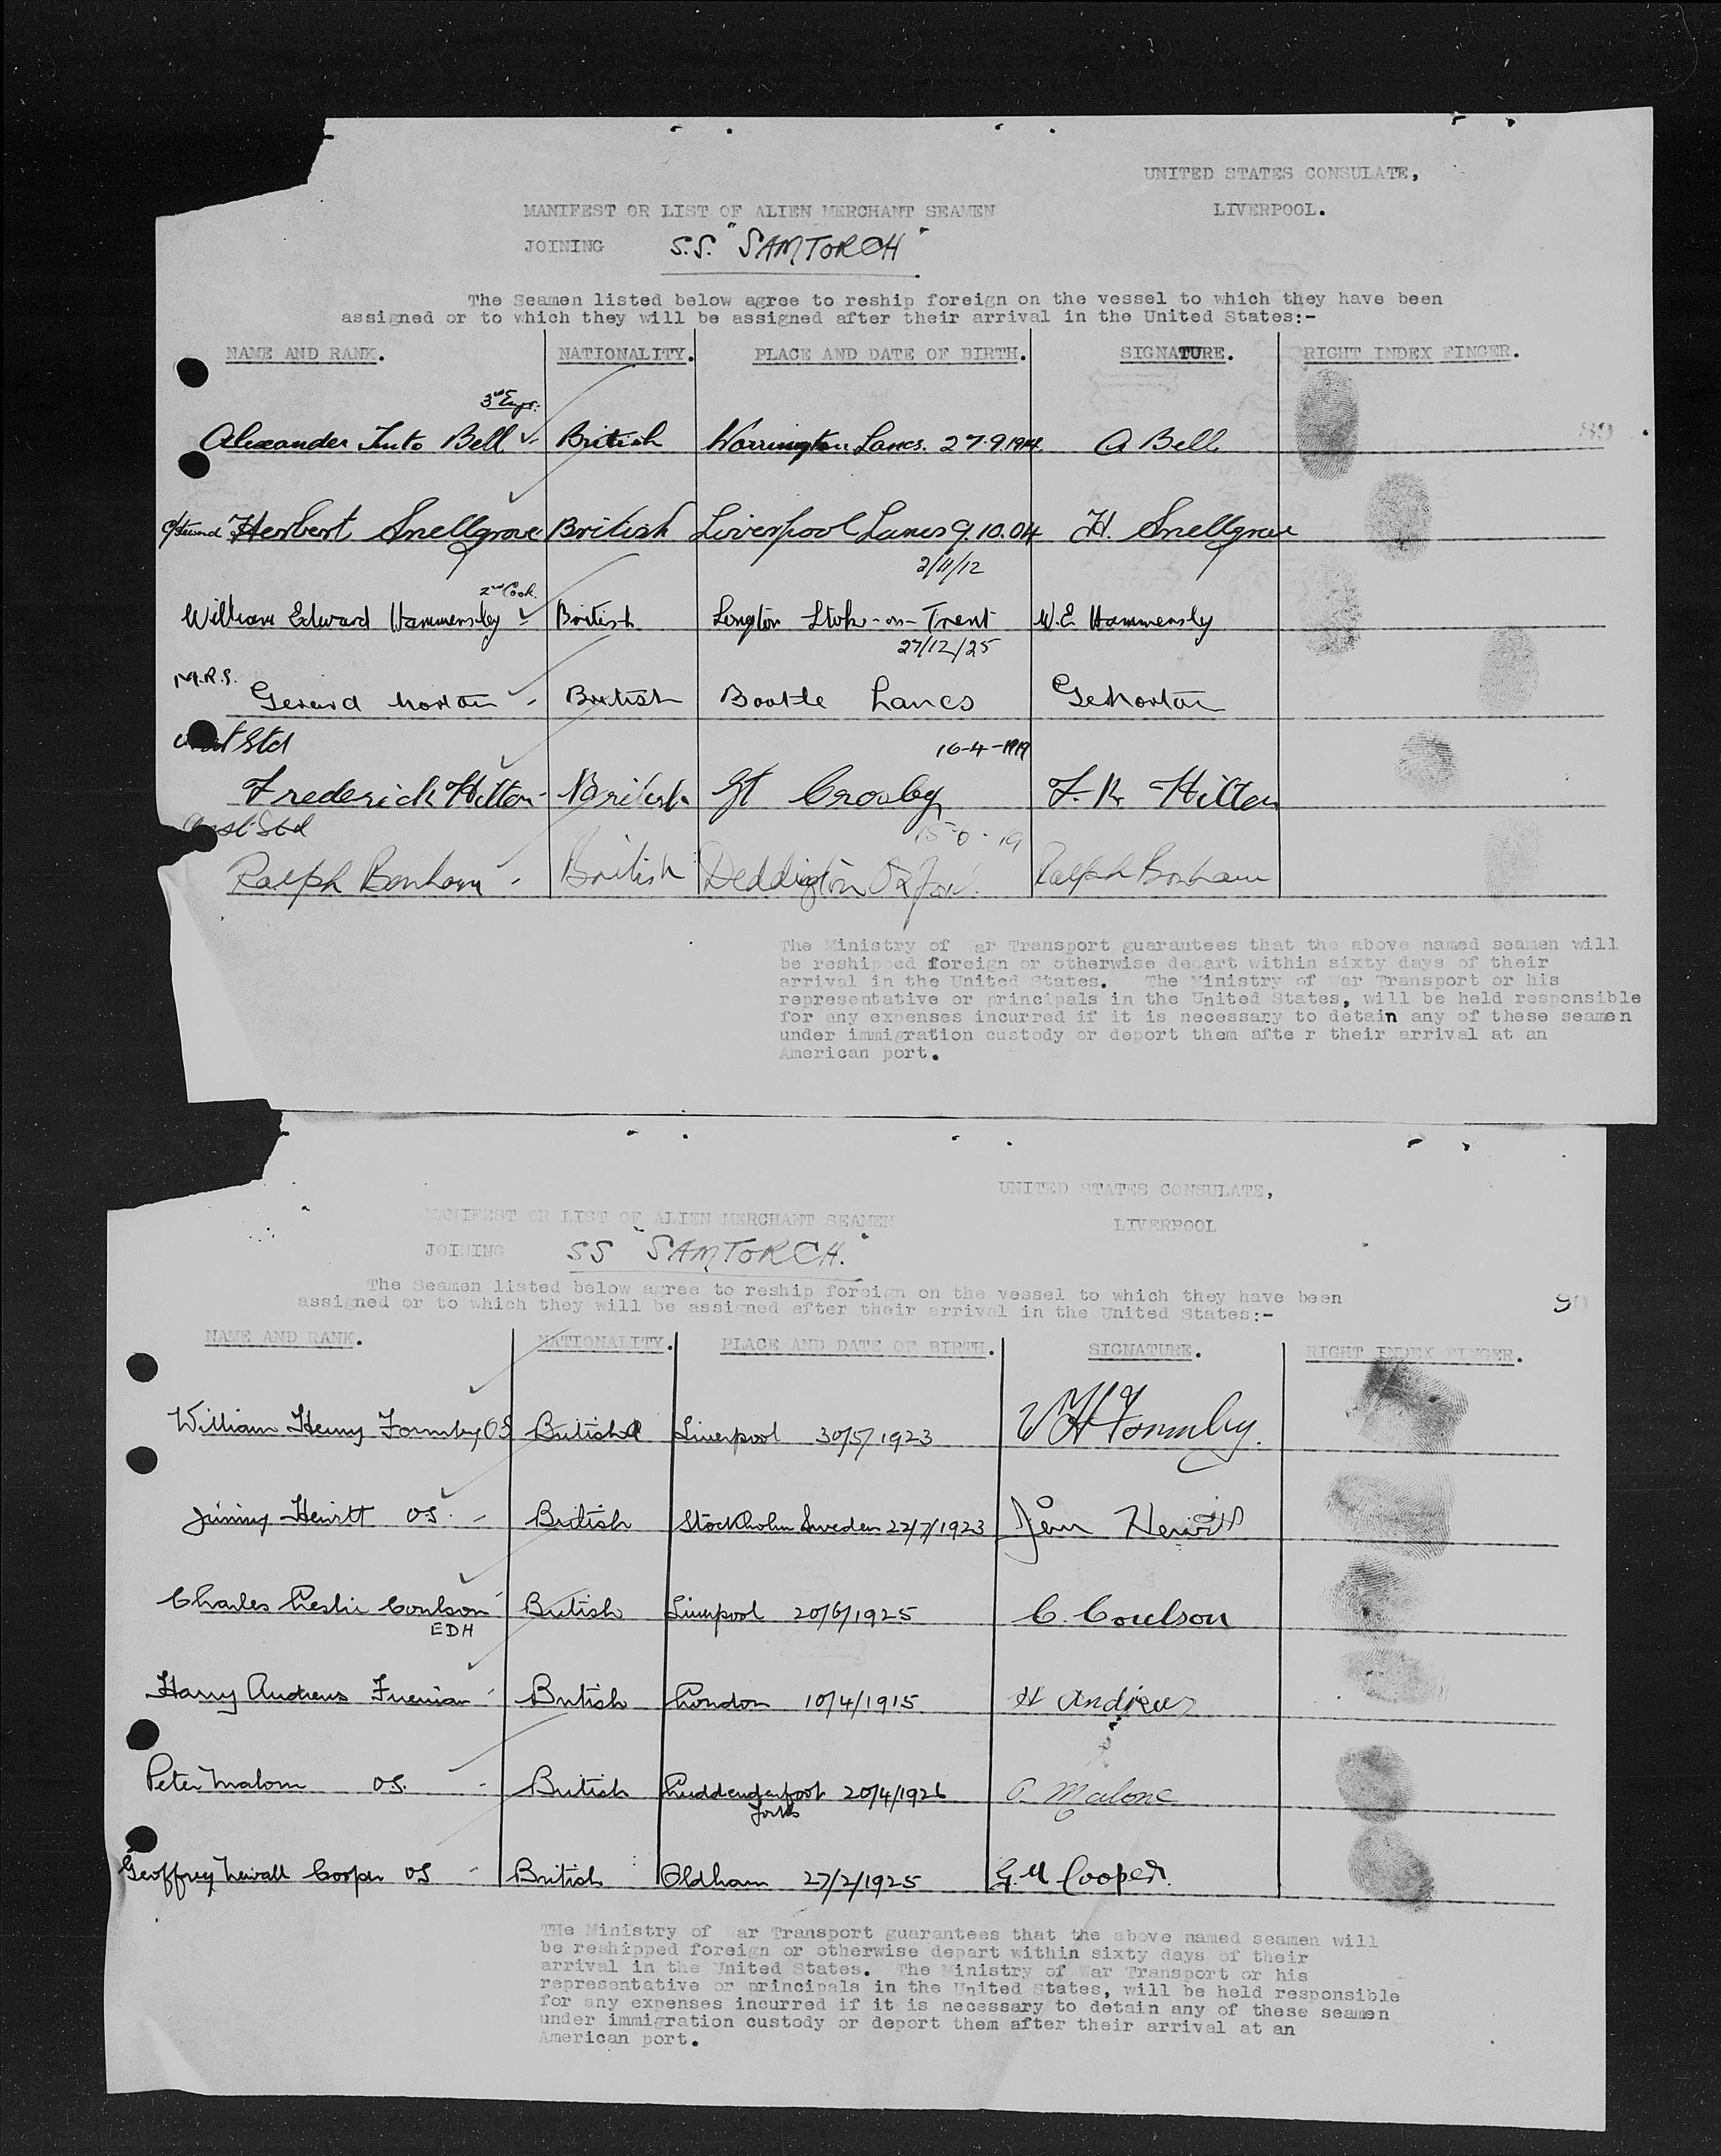 UNITED STATES CONSULATE,
LIVERPOOL.
MANIFEST OR LIST OF ALIEN MERCHANT SEAMEN
JOINING S.S. "SAMTORCH"
The Seamen listed below agree to reship foreign on the vessel to which they have been
assigned or to which they will be assigned after their arrival in the United States:-
NAME AND RANK. NATIONALITY. PLACE AND DATE OF BIRTH. SIGNATURE. RIGHT INDEX FINGER.
3rd Engr.
Alexander Bell British Warrington Lancs. 27.9.1914 A Bell
89
Herbert Snellgrove British Liverpool Lancs 9.10.04 H. Snellgrove
2/11/12
2nd Cook.
William Edward Hammersley British Longton Stoke-on-Trent W.E. Hammersley
27/12/25
M.R.S.
Gerard Norton British Bootle Lancs G Norton
Std
16-4-1919
Frederick Hilton British Gt Crosby F. K. Hilton
Asst Std
Ralph Bonham British Deddington Oxford. Ralph Bonham
The Ministry of War Transport guarantees that the above named seamen will
be reshipped foreign or otherwise depart within sixty days of their
arrival in the United States. The Ministry of War Transport or his
representative or principals in the United States, will be held responsible
for any expenses incurred if it is necessary to detain any of these seamen
under immigration custody or deport them afte r their arrival at an
American port.
UNITED STATES CONSULATE,
LIVERPOOL
MANIFEST OR LIST OF ALIEN MERCHANT SEAMEN
JOINING SS "SAMTORCH."
The Seamen listed below agree to reship foreign on the vessel to which they have been
assigned or to which they will be assigned after their arrival in the United States:-
90
NAME AND RANK. NATIONALITY. PLACE AND DATE OF BIRTH. SIGNATURE. RIGHT INDEX FINGER.
William Henry Formby OS British Liverpool 30/5/1923 W H Formby.
Jimmy Hewitt OS. British Stockholm Sweden 22/7/1923 Hewitt
Charles Leslie Coulson British Liverpool 20/6/1925 C. Coulson
EDH
Harry Andrews Fireman British London 10/4/1915 H Andrews
Peter Malone OS. British Luddendenfoot 20/4/1926 P. Malone
Yorks
Geoffrey Newall Cooper OS British Oldham 27/2/1925 G. N Cooper.
THe Ministry of War Transport guarantees that the above named seamen will
be reshipped foreign or otherwise depart within sixty days of their
arrival in the United States. The Ministry of War Transport or his
representative or principals in the United States, will be held responsible
for any expenses incurred if it is necessary to detain any of these seamen
under immigration custody or deport them after their arrival at an
American port.